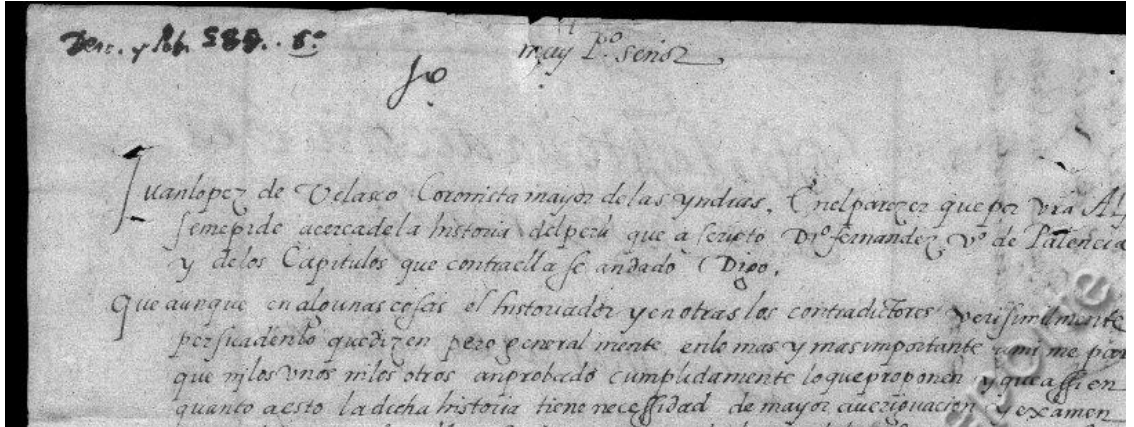 muy P.º señor
Juan lopez de Velasco Coronista mayor de las yndias, En el parezer que por vra Al
se me pide acerca de la historia del perú que a scripto Dº fernandez vº de Palencia
y de los Capitulos que contra ella se an dado Digo.
Que aunque en algunas cosas el historiador y en otras los contradictores verissimilmente
persuaden lo que dizen pero general mente en lo mas y mas importante a mi me par
que ni los unos ni los otros an probado cumplidamente lo que proponen y que assi en
quanto a esto la dicha historia tiene necessidad de mayor averiguacion y examen